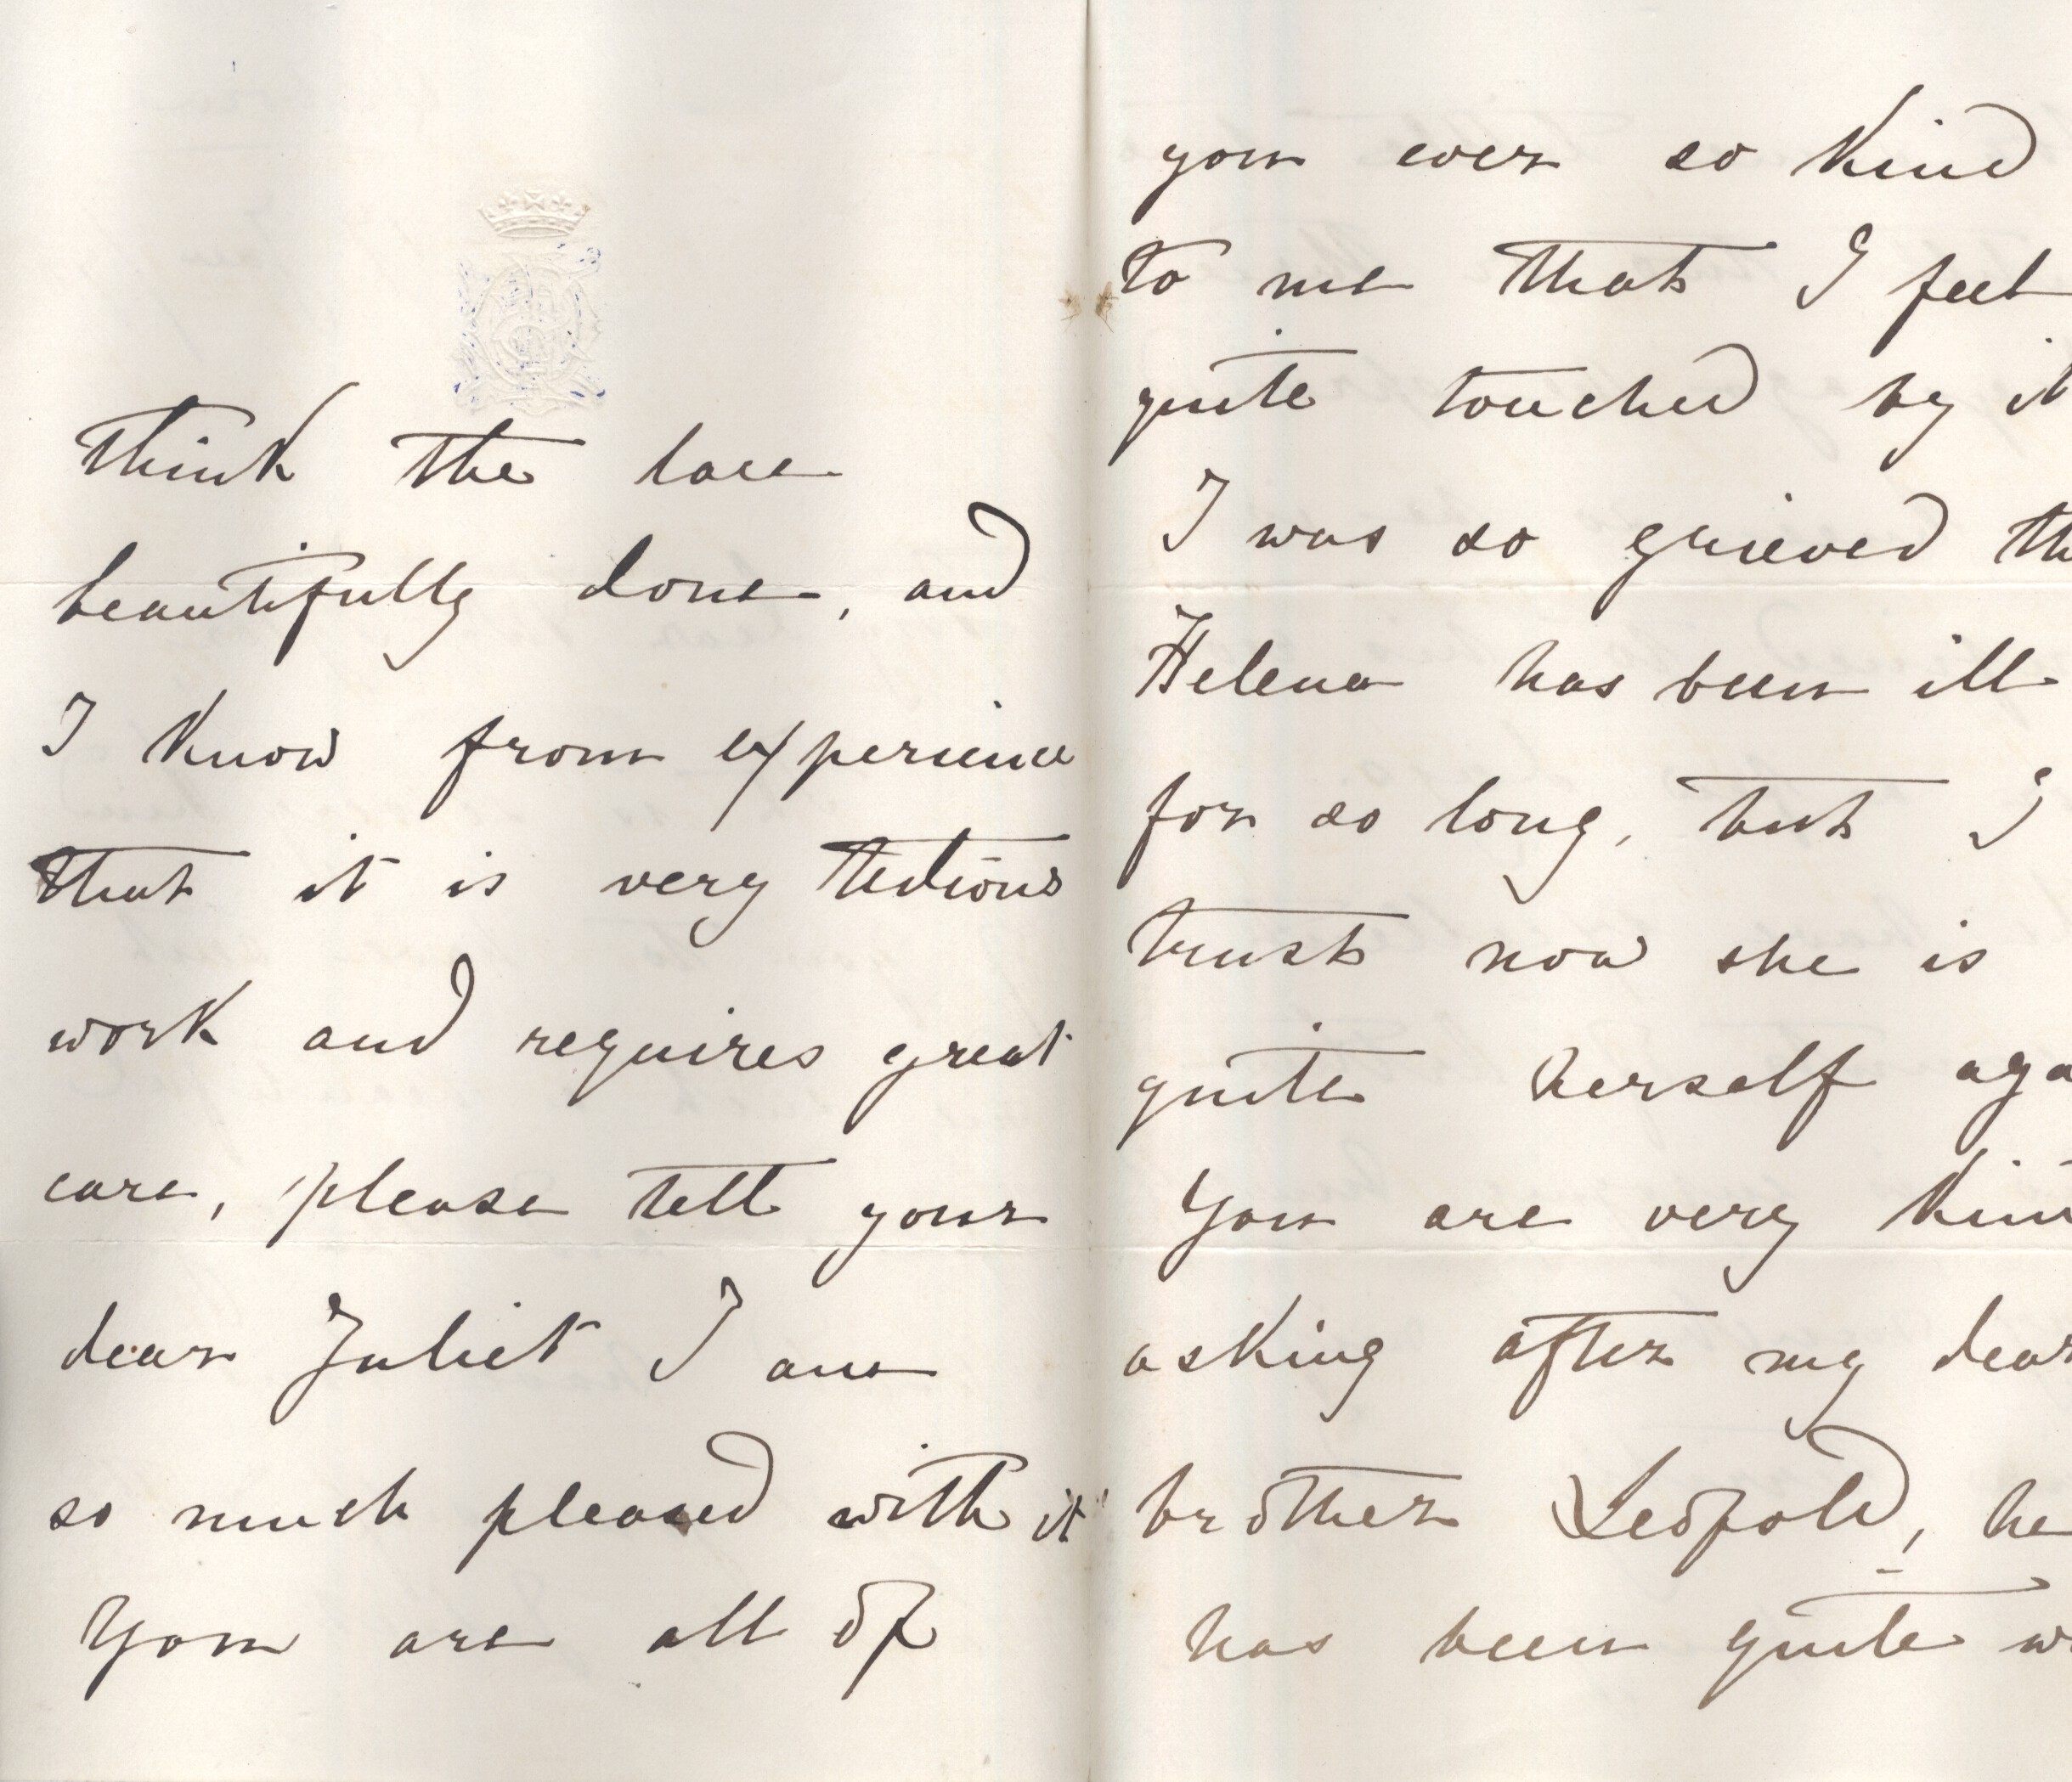 think the lace
beautifully done, and
I know from experience
that it is very tedious
work and requires great
care, please tell your
dear Juliet I am
so much pleased with it
You are all of
you ever so kind
to me that I feel
quite touched by it
I was so grieved th
Helena has been ill
for so long, but I
trust now she is
quite herself aga
You are very kin
asking after my dear
brother Leopold, he
has been quite w